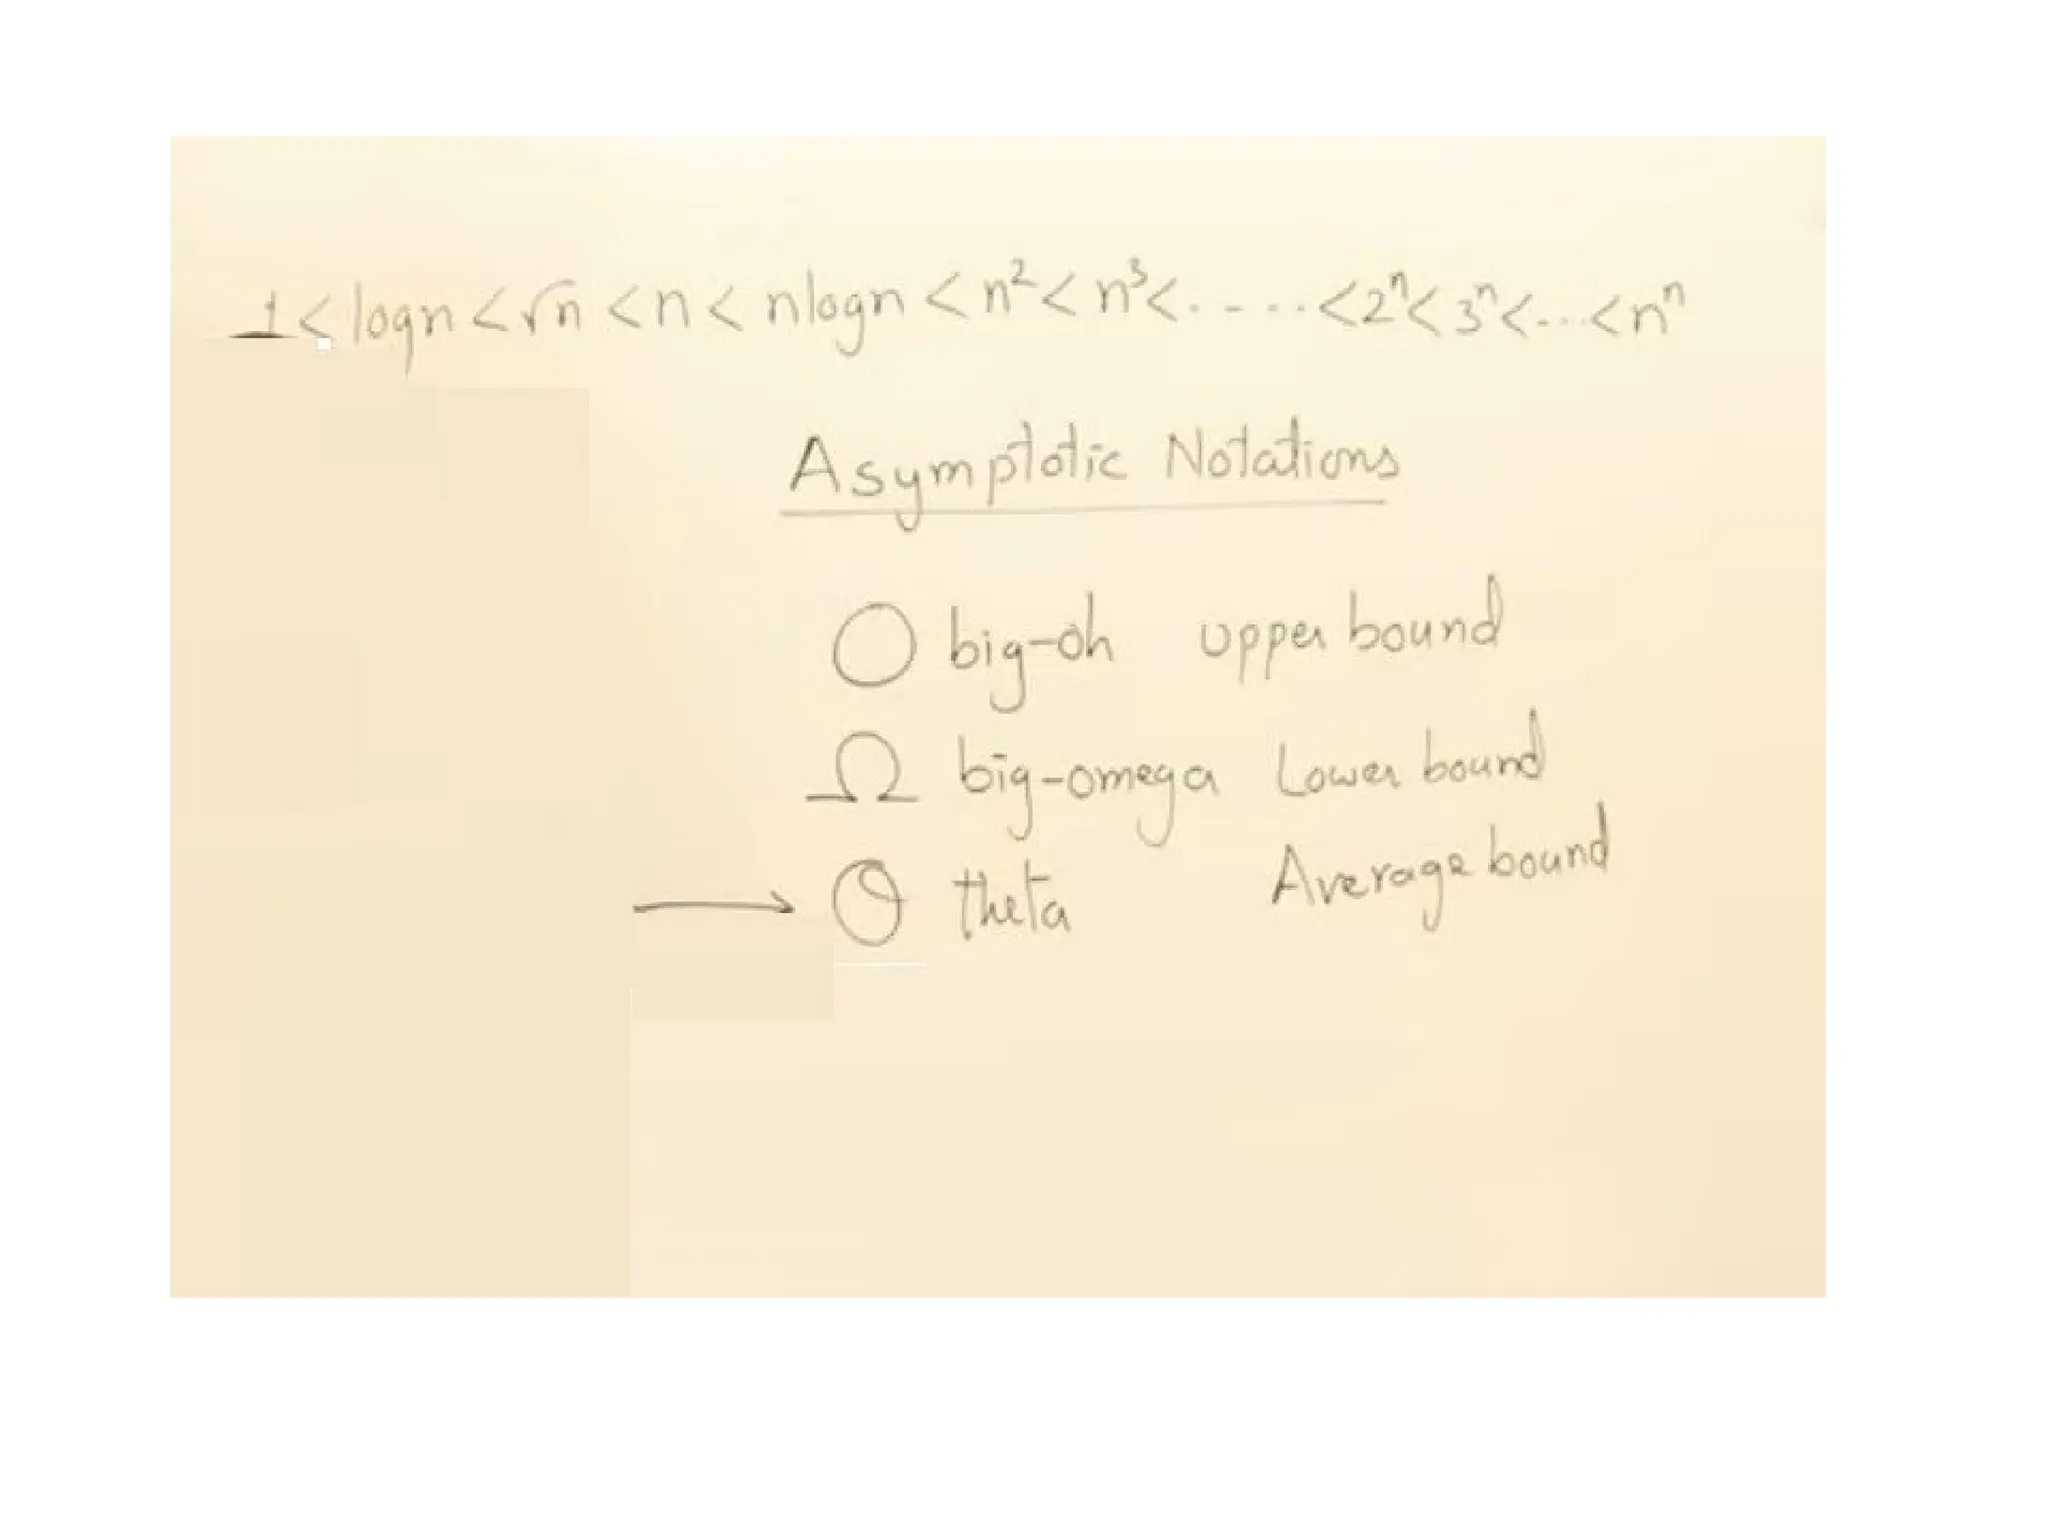 1 < logn < √n < n < nlogn < n² < n³ < ..... < 2ⁿ < 3ⁿ < ... < nⁿ
Asymptotic Notations
O big-oh upper bound
Ω big-omega Lower bound
θ theta Average bound